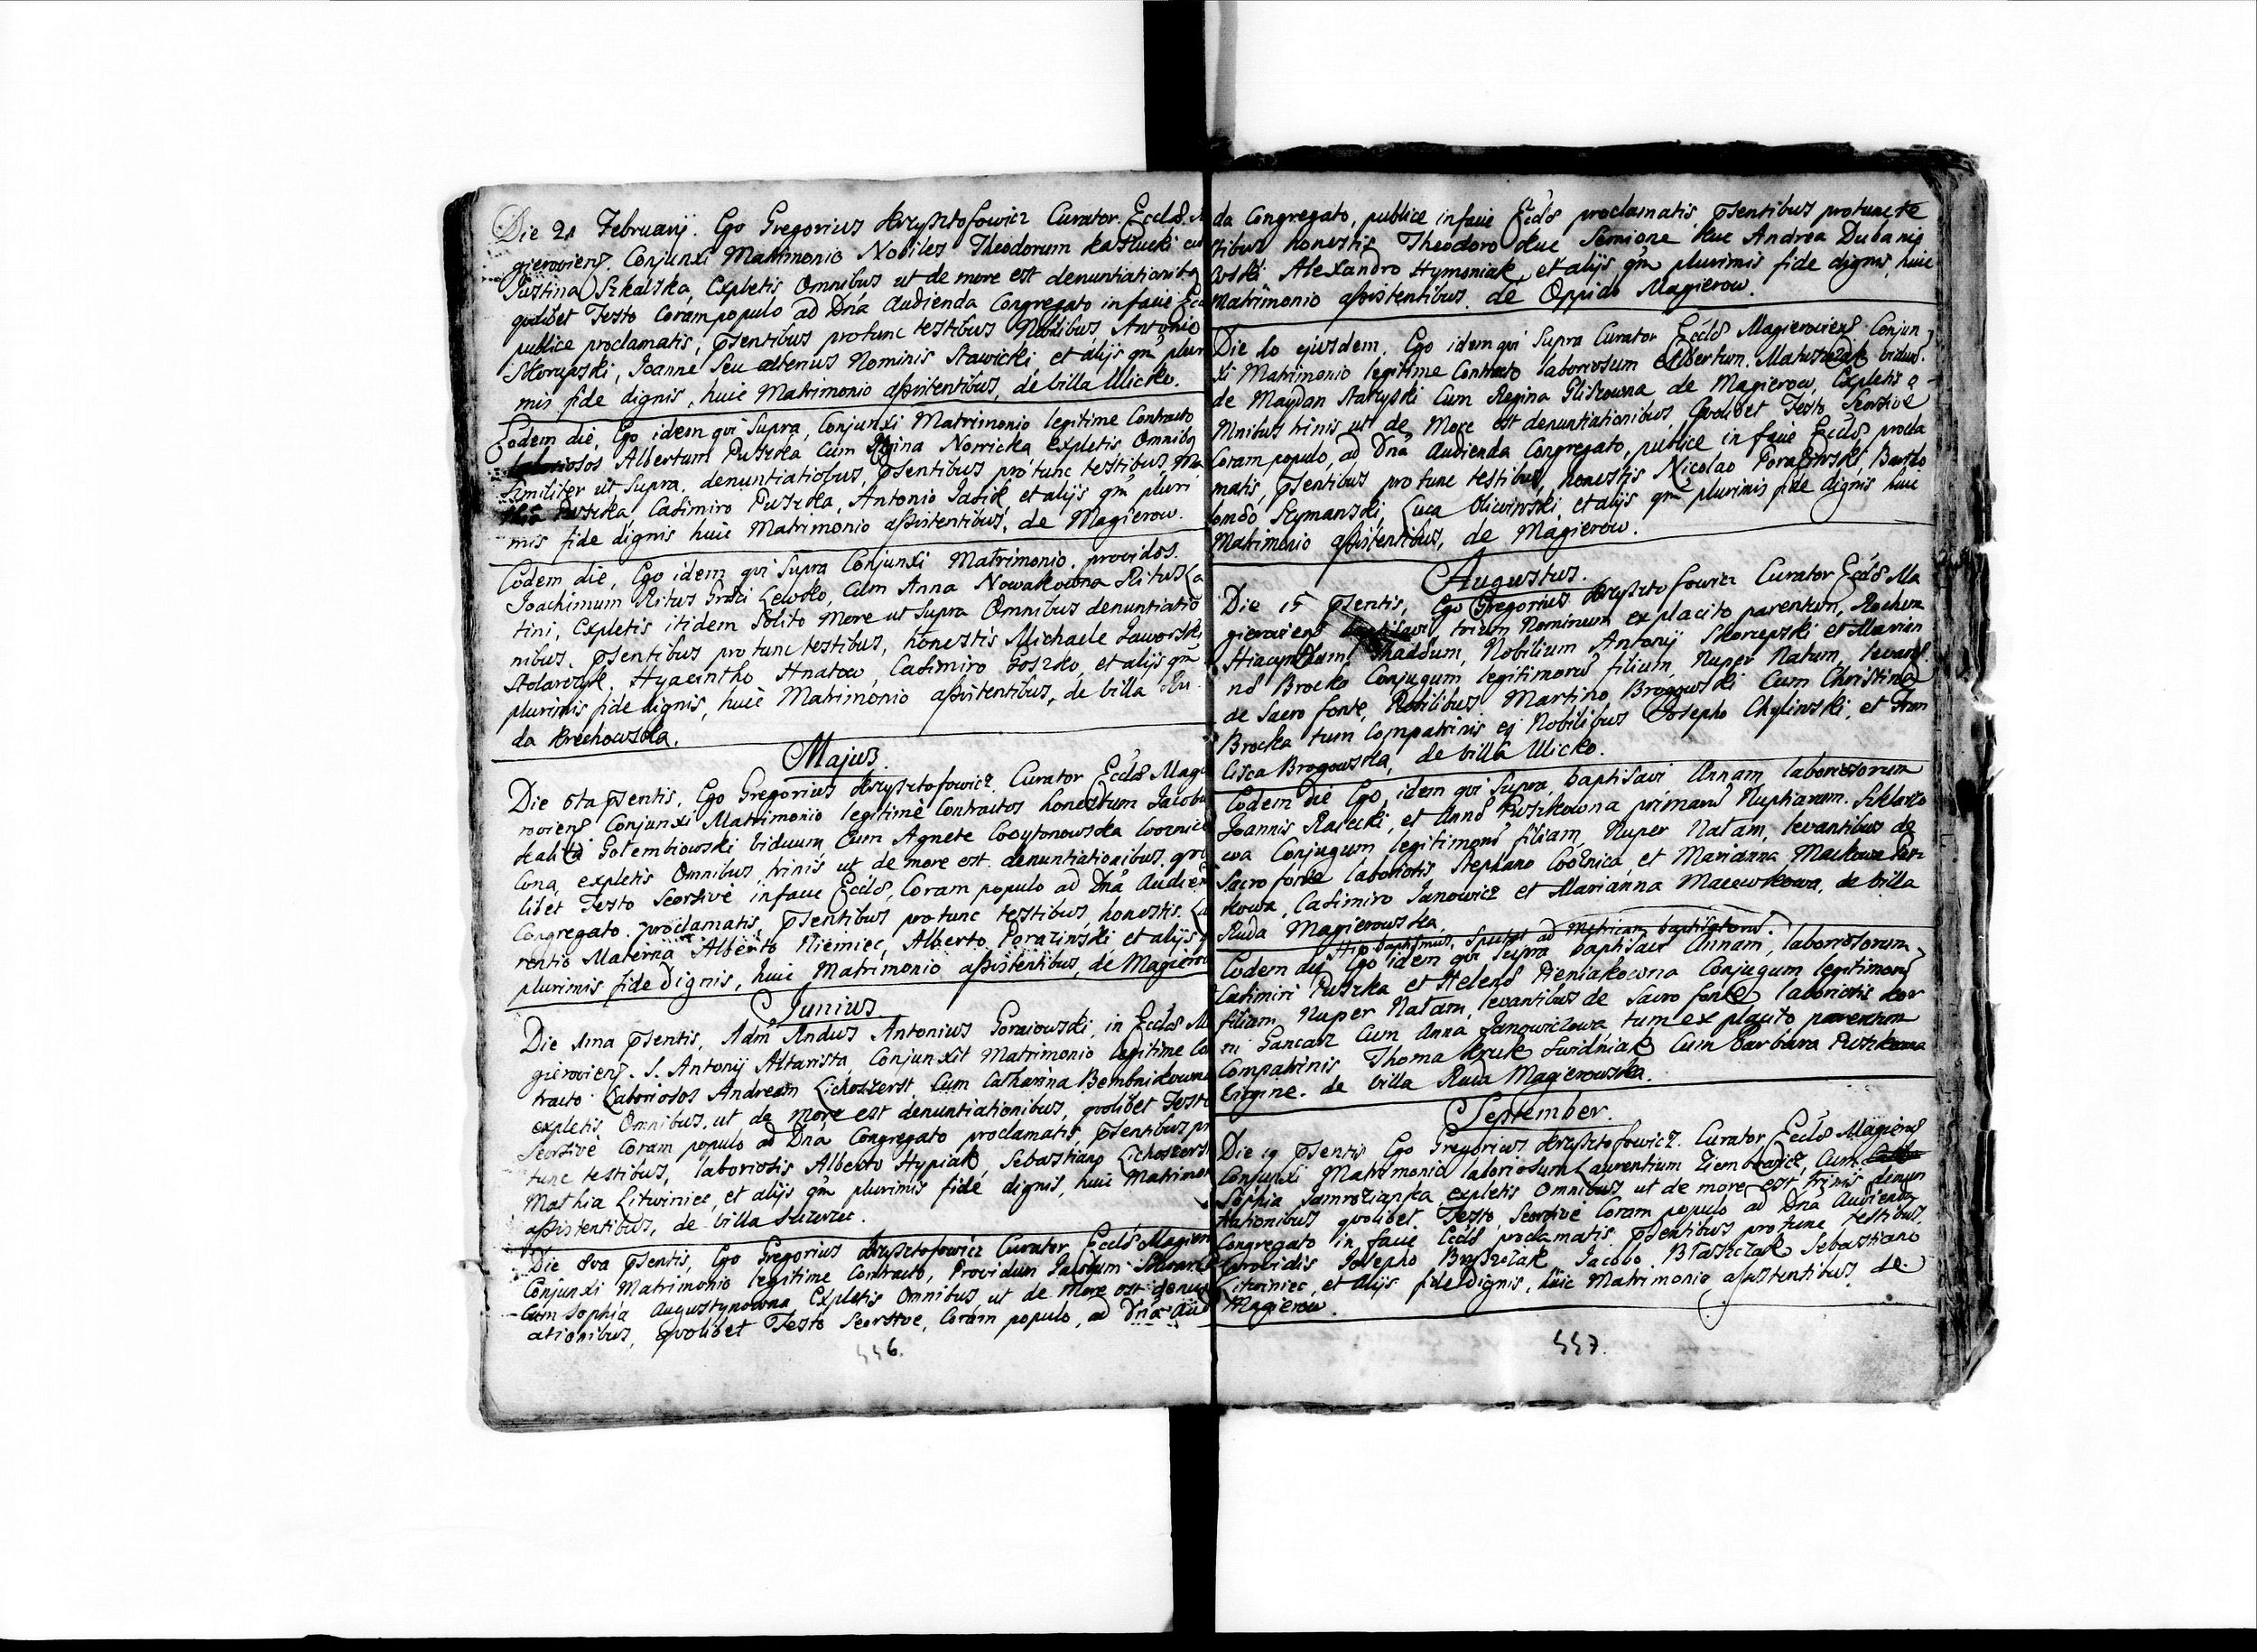 Die 21 Februarij. Ego Gregorius Krysztofowicz Curator Eccls
gierowiens. Conjunxi Matrimonio Nobiles Theodorum
Justina Szkalska, Expletis Omnibus ut de more est denuntiationibs
quolibet Festo Coram populo ad Dna Audienda Congregato in facie
publice proclamatis, psentibus protunc testibus Nobilibus, Antonio
Skorupski, Joanne Seu alterius Nominis Stawicki, et alijs qm plur
mis fide dignis, huic Matrimonio assistentibus, de villa Ulicko.
Eodem die, Ego idem qui Supra, Conjunxi Matrimonio legitime Contracto
Albertum Puszka Cum Regina Norricka expletis Omnibs
Similiter ut Supra. denuntiatiobus, psentibus protunc testibus,
Puszka Casimiro Puszka, Antonio Jasik et alijs qm pluri
mis fide dignis huic Matrimonio assistentibus, de Magierow.
Eodem die, Ego idem qui Supra Conjunxi Matrimonio. providos.
Joachimum Ritus Graci Lewko, Cum Anna Nowakowna Ritus La
tini, Expletis itidem Solito More ut Supra Omnibus denuntiatio
nibus, psentibus pro tunc testibus, honestis Michaele Jaworski
Stolarczyk, Hyacintho Hnatow, Casimiro Goszko, et alijs qm
plurimis fide dignis, huic Matrimonio assistentibus, de villa Ru
da Krechowska.
Majus.
Die 6ta psentis, Ego Gregorius Krysztofowicz Curator Eccls Magie
roviens Conjunxi Matrimonio legitimè Contractos honestum Jacobu
Gołembiowski viduum Cum Agnete
cona, expletis Omnibus trinis ut de more est denuntiationibus, quo
libet Festo Seorsivè in facie Eccls, Coram populo ad Dna Audien
Congregato. proclamatis, psentibus protunc testibus, honestis. La
rentio Materna Alberto Niemiec, Alberto Poraziński, et alijs q
plurimis fide dignis, huic Matrimonio assistentibus, de Magierow
Junius
Die 1ma psentis, Adm Rndus Antonius Goraiowski, in Eccls Ma
gierowiens. S. Antonij Altarista, Conjunxit Matrimonio legitime Co
tracto Laboriosos Andream Lichoszerst Cum Catharina Bembnikowna
expletis Omnibus, ut de more est denuntiationibus, quolibet Festo
Seorsivè Coram populo ad Dna Congregato proclamatis, psentibus pr
tunc testibus, laboriosis Alberto Hypiak, Sebastiano Lichoszerst
Mathia Litwiniec, et alijs qm plurimis fide dignis, huic Matrimon
assistentibus, de villa
Die 8va psentis, Ego Gregorius Krysztofowicz Curator Eccls Magiero
Conjunxi Matrimonio legitime Contracto, Providum
Cum Sophia Augustynowna, Expletis Omnibus ut de More est denun
ationibus, quolibet Festo Seorsive, Coram populo, ad Dna Aud
556.
da Congregato, publice in facie Eccls proclamatis psentibus protunc te
stibus honestis Theodoro Kuc Semione Kuc Andrea
Alexandro Hymoniak, et alijs qm plurimis fide dignis, huic
Matrimonio assistentibus. de Oppido Magierow.
Die 10 ejusdem. Ego idem qui Supra Curator Eccls Magierowiens Conjun
xi Matrimonio legitime Contracto laboriosum Albertum. Matuszczak viduu.
de Maydan Cum Regina Gliszowna de Magierow, Expletis o
mnibus trinis ut de More est denuntiationibus, Quolibet Festo Seorsivè
Coram populo, ad Dna Audienda Congregato, publice in facie Eccls procla
matis, psentibus pro tunc testibus, honestis Nicolao Poraziński, Barto
lomeo Szymanski, Luca Oliwinski, et alijs qm plurimis fide dignis huic
Matrimonio assistentibus, de Magierow.
Augustus.
Die 15 psentis, Ego Gregorius Krysztofowicz Curator Eccls Ma
gierowiens baptisavi trium Nominum ex placito parentum, Rochum
Hiacynthum Thaddum, Nobilium Antonij Skorupski et Marian
ns Brocka Conjugum legitimors filium, Nuper Natum, levants.
de Sacro fonte, Nobilibus, Martino Brogowski Cum Christina
Brocka tum Compatrinis ej Nobilibus Josepho Chylinski, et Fran
cisca Brogowska, de villa Ulicko.
Eodem die Ego, idem qui Supra, baptisavi Annam, laboriosorum
Joannis Rarecki, et Anns Puszkowna primars Nuptiarum. Szklarzo
wa Conjugum legitimors filiam, Nuper Natam, levantibus de
Sacro fonte laboriosis Stephano Woźnica, et Marianna Mackowa
kowa, Casimiro Janowicz et Marianna Macewkowa, de villa
Ruda Magierowska.
Hic baptismus, Spectat ad Metricam baptisatorum.
Eodem die Ego idem qui Supra baptisavi Annam, laboriosorum
Casimiri Puszka et Helens Pieniakowna Conjugum legitimors
filiam, Nuper Natam, levantibus de Sacro fonte laboriosis Mar
ni Gancarz Cum Anna Janowiczowa tum ex placito parentum
Compatrinis Thoma Kruk Swidniak Cum Barbara Puszkowna
Virgine. de villa Ruda Magierowska.
September.
Die 19 psentis Ego Gregorius Krysztofowicz. Curator Eccls Magiers
Conjunxi Matrimonio laboriosum Laurentium Ziembowicz, Cum
Sophia Jamrozianka expletis Omnibus ut de more est trinis denun
tiationibus quolibet Festo, Seorsivè Coram populo ad Dna Audienda
Congregato in facie Eccls proclamatis psentibus protunc testibus,
providis Josepho Bryszczak Jacobo Błaszczak Sebastiano
Litwiniec, et alijs fide dignis, huic Matrimonio assistentibus, de
Magierow.
557.